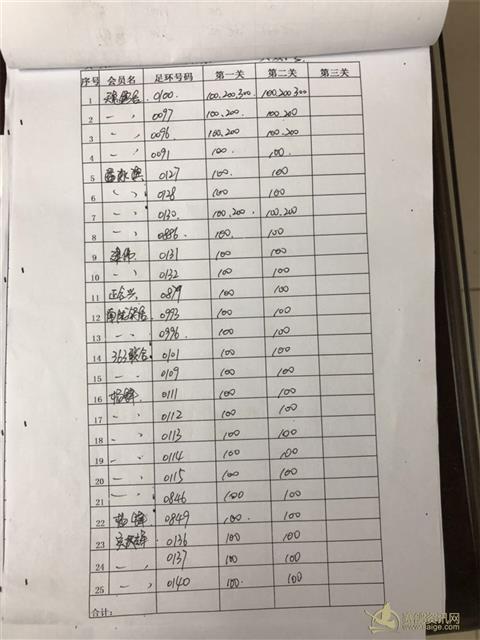 序号 会员名 足环号码 第一关 第二关 第三关
1 0100. 100.200.300 100.200.300
2 一 , 0097 100.200. 100.200
3 一 , 0096 100.200. 100.200
4 一 , 0091 100. 100.
5 0127 100. 100
6 一 , 0128 100 100
7 一 , 0130. 100.200. 100.200
8 一 , 0886. 100. 100
9 0131 100 100
10 一 , 0132 100 100
11 正合兴 0879 100 100
12 0993 100 100
13 一 , 0996 100 100
14 363联合 0101 100 100
15 一 , 0109 100 100
16 杨锋 0111 100 100
17 一 , 0112 100 100
18 一 , 0113 100 100
19 一 , 0114 100 100
20 一 , 0115 100 100
21 一 , 0846 100 100
22 杨锋 0849 100. 100
23 0136 100 100
24 一 , 0137 100 100
25 一 , 0140 100. 100
合计: